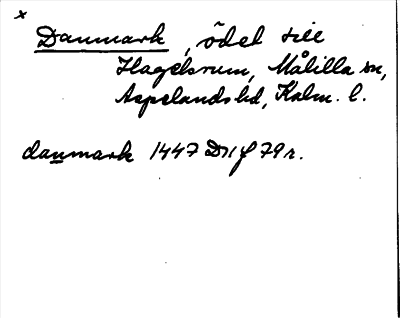 x
Danmark, ödet till
Hagelsrum, Målilla sn,
Aspelands hd, Kalm. l.
danmark 1447 Dn f 79 r.